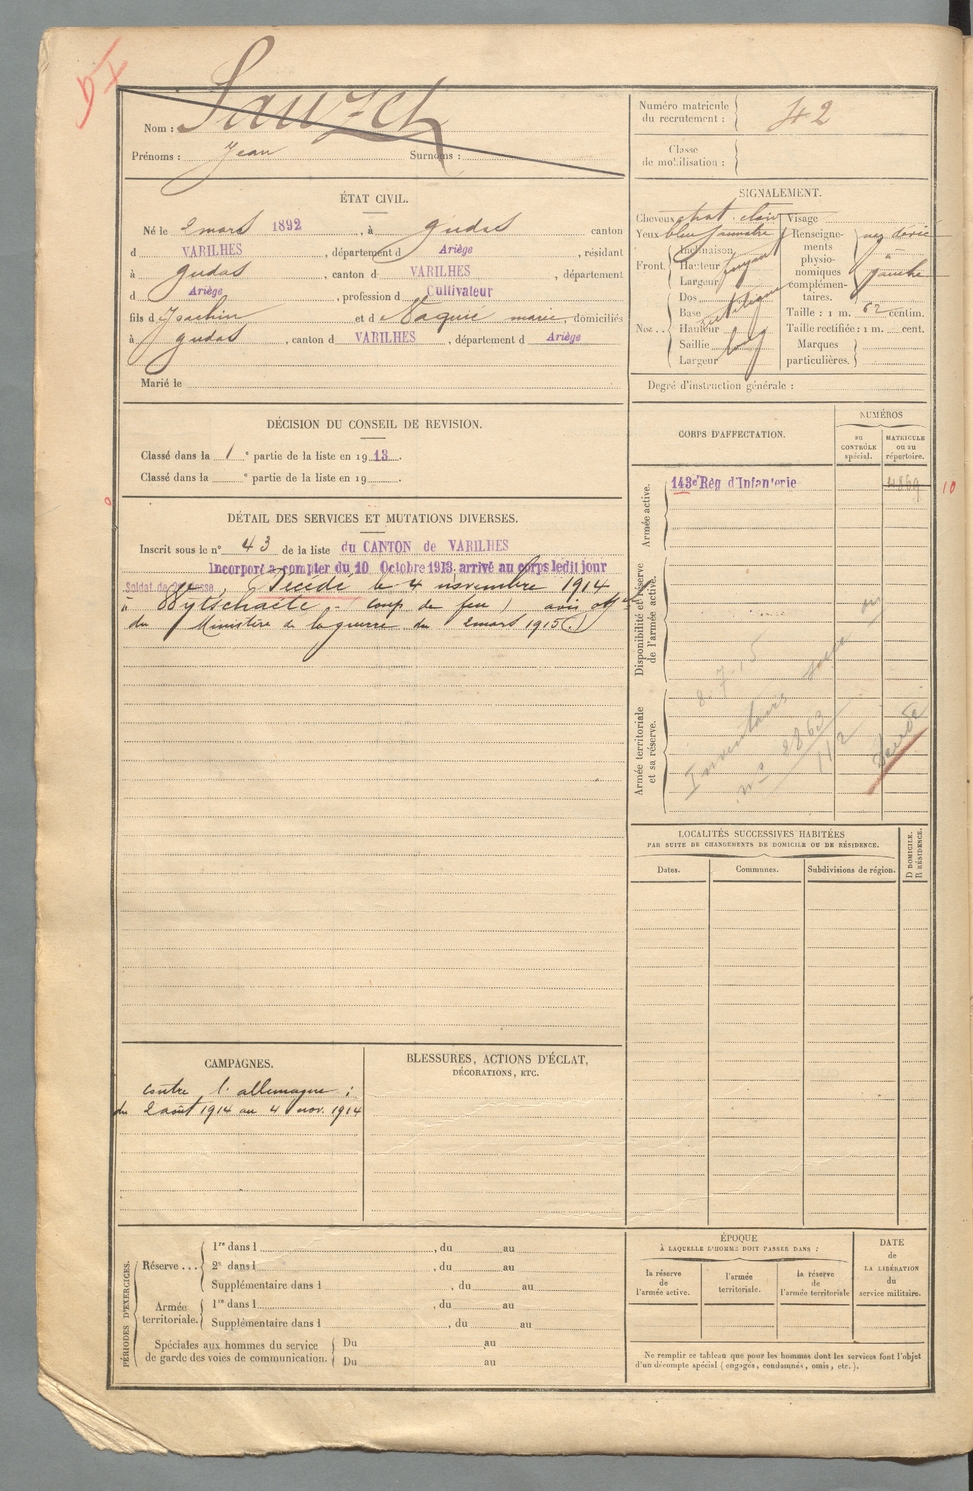 Nom : Sauzet
Prénoms : Jean Surnoms :
Numéro matricule du recrutement : 42
Classe de mobilisation :
ÉTAT CIVIL.
Né le 2 mars 1892, à Gudas canton
d VARILHES, département d Ariège, résidant
à Gudas, canton d VARILHES, département
d Ariège, profession d Cultivateur
fils d Joachin et d Naquié marie, domiciliés
à Gudas, canton d VARILHES, département d Ariège
Marié le
SIGNALEMENT.
Cheveux chat. clair Visage
Yeux bleu jaunatre
Front. Inclinaison
Hauteur moyen
Largeur
Nez Dos
Base
Hauteur
Saillie
Largeur
Renseignements physionomiques complémentaires. nez dévié à gauche
Taille : 1 m. 62 centim.
Taille rectifiée : 1 m. cent.
Marques particulières.
Degré d'instruction générale :
DÉCISION DU CONSEIL DE REVISION.
Classé dans la 1 e partie de la liste en 1913.
Classé dans la e partie de la liste en 19
DÉTAIL DES SERVICES ET MUTATIONS DIVERSES.
Inscrit sous le n° 43 de la liste du CANTON de VARILHES
Incorporé à compter du 10 Octobre 1913, arrivé au corps ledit jour
Soldat de 2e classe, Décédé le 4 novembre 1914
à Wytschaete - (coup de feu) avis off el
du Ministère de la guerre du 2 mars 1915
CORPS D'AFFECTATION.
NUMÉROS
au CONTRÔLE spécial.
MATRICULE ou au répertoire.
Armée active.
143e Rég d'Infanterie 4869 10
Disponibilité et réserve de l'armée active.
Armée territoriale et sa réserve.
8.7.15
Inventaire
n° 2863
112
LOCALITÉS SUCCESSIVES HABITÉES
PAR SUITE DE CHANGEMENTS DE DOMICILE OU DE RÉSIDENCE.
Dates. Communes. Subdivisions de région. D DOMICILE. R RÉSIDENCE.
CAMPAGNES.
contre l'allemagne :
du 2 août 1914 au 4 nov. 1914
BLESSURES, ACTIONS D'ÉCLAT,
DÉCORATIONS, ETC.
PÉRIODES D'EXERCICES.
Réserve ... 1re dans l , du au
2e dans l , du au
Supplémentaire dans l , du au
Armée territoriale. 1re dans l , du au
Supplémentaire dans l , du au
Spéciales aux hommes du service de garde des voies de communication. Du au
Du au
ÉPOQUE
À LAQUELLE L'HOMME DOIT PASSER DANS :
la réserve de l'armée active.
l'armée territoriale.
la réserve de l'armée territoriale
DATE de LA LIBÉRATION du service militaire.
Ne remplir ce tableau que pour les hommes dont les services font l'objet
d'un décompte spécial (engagés, condamnés, omis, etc.).